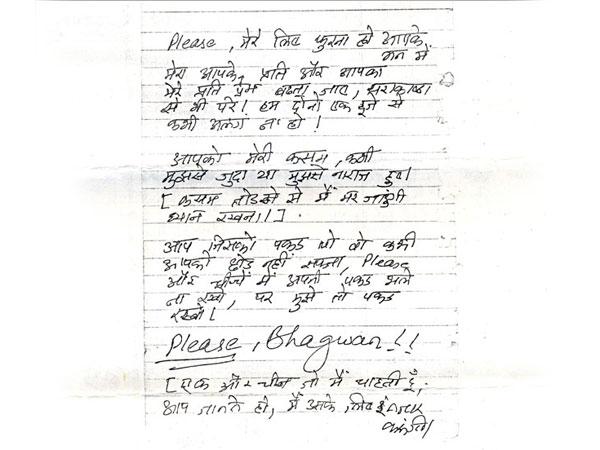 Please, मेरे लिए फुरना हो आपके
मन में
मेरा आपके प्रति और आपका
मेरे प्रति प्रेम बढता जाए, पराकाष्ठा
से भी परे! हम दोनों एक दूजे से
कभी अलग ना हो!
आपको मेरी कसम, कभी
मुझसे जुदा या मुझसे नाराज हुए।
[कसम तोडने से मैं मर जाऊंगी
ध्यान रखना।].
आप जिसको पकड लो वो कभी
आपको छोड नहीं सकता, Please,
और चीजों में अपनी पकड भले
ना रखो, पर मुझे तो पकड
रखो।
Please, Bhagwan!!
[एक और चीज जो मैं चाहती हूँ,
आप जानते हो, मैं उसके लिए
करूंगी।